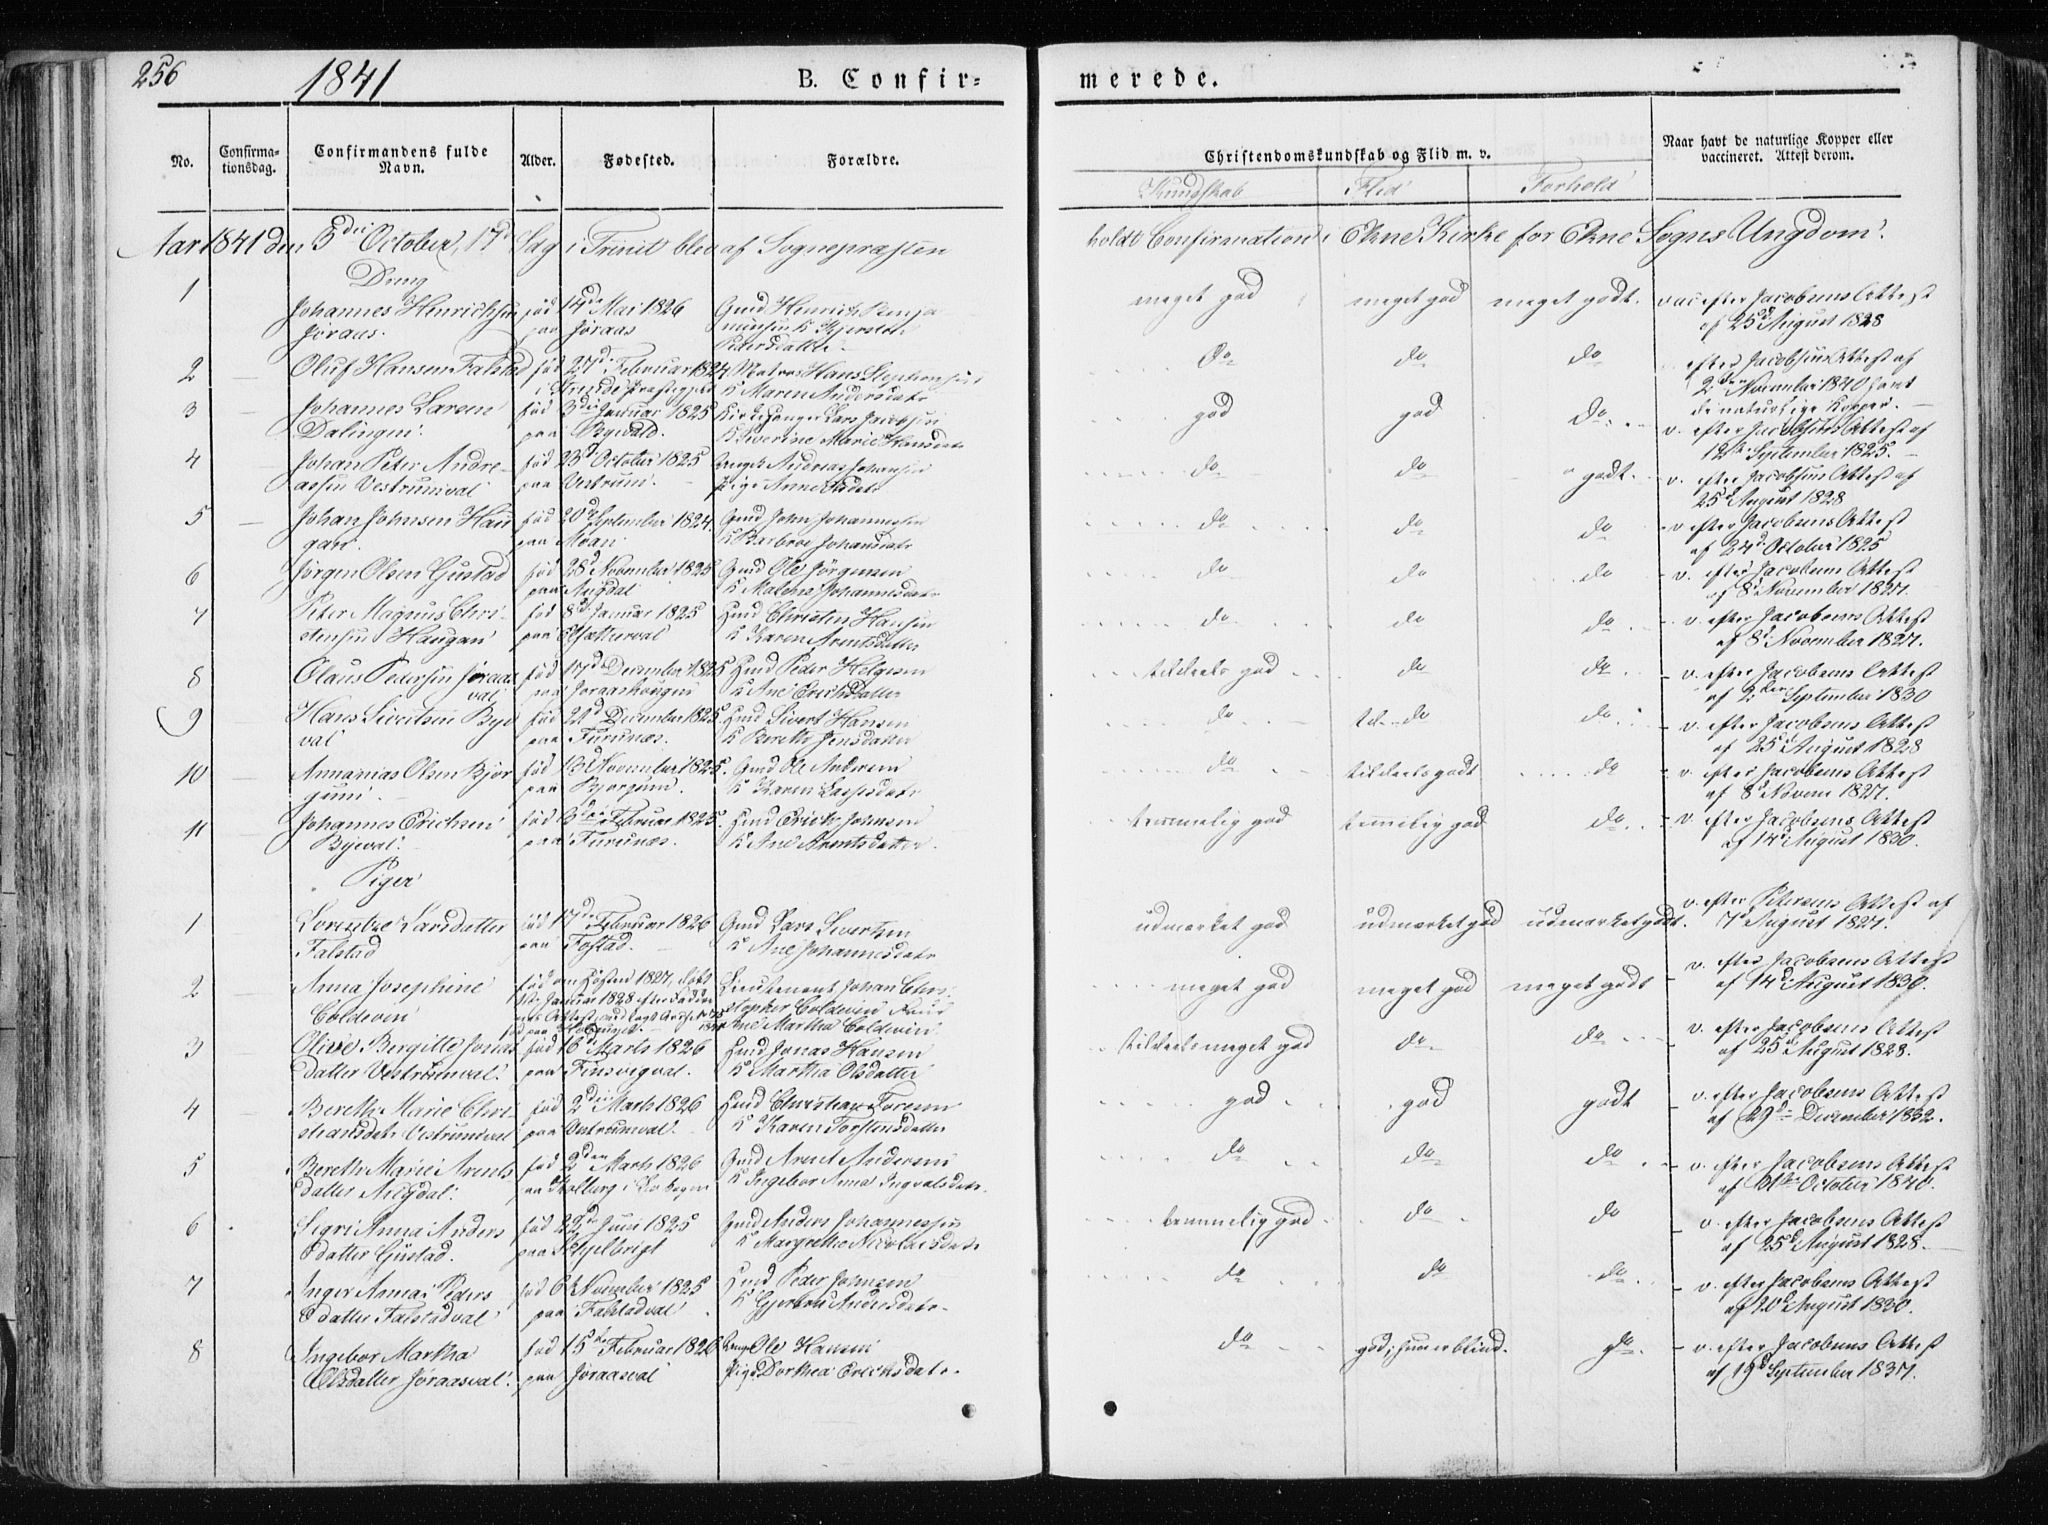 256
1841
B. Confir-
merede.
No.
Confirma-
tionsdag.
Confirmandens fulde
Navn.
Alder.
Fødested.
Forældre.
Christendomskundskab og Flid m. v.
Naar havt de naturlige Kopper eller
vaccineret. Attest derom.
Kundskab
Flid
Forhold
Aar 1841 den 3die October, 17d Søg i Trinit blev af Sognepræsten
holdt Confirmation i Ekne Kirke for Ekne Sogns Ungdom.
Dreng
1
Johannes Henrichsen
Joraas.
født 14de Mai 1826
paa Joraas
Gmd Henrich Benja
minsen K Kjersten
Pedersdatter
meget god
meget god
meget godt.
vac efter Jacobsens Attest
af 25d August 1828
2
Oluf Hansen Falstad
født 27d Februar 1824
i
Hans Stephensen
K Maren Andersdatr
do
do
do
efter Jacobsens Attest af
2den November 1840 havt
de naturlige Kopper.
3
Johannes Larsen
Dalingen.
født 3die Januar 1825
paa Byevald.
Lars Jacobsen
K Siverine Marie Hansdatr
god
god
do
v. efter Jacobsens Attest af
12te September 1825.
4
Johan Peter Andre-
assen Vestrumval
født 23d October 1825
paa Vestrum.
Andreas Johansen
Pige Anne
do
do
godt.
v. efter Jacobsens Attest af
25d August 1828
5
Johan Johnsen Hau
gan.
født 20d September 1824.
paa Moan
Gmd John Johannesen
K Barbroe Johansdatr
do
do
do
v. efter Jacobsens Attest
af 24d October 1825
6
Jørgen Olsen Gustad
født 28d November 1825
paa Augdal
Gmd Ole Jørgensen
K Malena Johannesdatr
do
do
do
v. efter Jacobsens Attest
af 8d November 1827.
7
Peter Magnus Chri-
stensen Haugan
født 8d Januar 1825
paa
Hmd Christen Hansen
K Karen Arntsdatter
do
do
do
v. efter Jacobsens Attest
af 8d November 1827.
8
Olaus Pedersen Joraas
val
født 17d December 1825
paa Joraashaugen
Hmd Peder Helgesen
K Ane Erichsdatter
tildeels god
do
do
v. efter Jacobsens Attest
af 2den September 1830
9
Hans Sivertsen Bye
val
født 21d December 1825
paa Furunæs.
Hmd Sivert Hansen
K Berethe Jensdatter
do
til-do
do
v. efter Jacobsens Attest
af 25d August 1828
10
Annanias Olsen Bjør
gum.
født 13 November 1825.
paa Bjørgum.
Gmd Ole Andersen
K Karen
do
tildeels godt
do
v. efter Jacobsens Attest
af 8d Novem 1827.
11
Johannes Erichsen
Byeval.
født 3die Februar 1825.
paa Furunæs.
Hmd Erich Johnsen
K Ane Arntsdatter
temmelig god
temmelig god
do
v. efter Jacobsens Attest
af 14d August 1830.
Piger
1
Lorentze Larsdatter
Falstad
født 17de Februar 1826
paa Fostad.
Gmd Lars Sivertsen
K Ane Johannesdatr
udmærket god
udmærket god
udmærket godt.
v. efter Petersens Attest af
7d August 1827.
2
Anna Josephine
Coldevin
født om Høsten 1827, døbt
1ste Januar 1828 efter Fadder
Lieutenant Johan Chri-
stopher Coldevin Frue
Ane Martha Coldevin.
meget god
meget god
meget godt
v. efter Jacobsens Attest
af 14d August 1830.
3
Olive Bergitte Jonas
datter Vestrumval.
født 16d Marts 1826
paa Finsvigval.
Hmd Jonas Hansen
K Martha Olsdatter
tildeels meget god
do
do
v. efter Jacobsens Attest
af 25d August 1828.
4
Bereth Marie Chri-
stiansdatr Vestrumval
født 2den Marts 1826
paa Vestrumval.
Hmd Christian Toresen
K Karen Torstensdatter
god
god
godt
v. efter Jacobsens Attest
af 29d December 1832.
5
Bereth Marie Arnts
datter Augdal.
født 2den Marts 1826
Gmd Arnt Andersen
K Ingebor Anna Ingvalsdatr.
do
do
do
v. efter Jacobsens Attest
af 21de October 1840.
6
Sigri Anna Anders
datter Gustad.
født 22d Juni 1825
paa
Gmd Anders Johannessen
K Margrethe Nicolaisdatr
temmelig god
do
do
v. efter Jacobsens Attest
af 25d August 1828.
7
Inger Anna Peders
datter Falstadval
født 6 November 1825
paa Falstadval
Hmd Peder Johnsen
K Gjertru Andersdatr
do
do
do
v. efter Jacobsens Attest
af 20d August 1830.
8
Ingebor Martha
Olsdatter Joraasval.
født 15de Februar 1826
paa Joraasval
Ole Hansen
Pige Dorthea Erichsdatr.
do
god; hun er blind.
do
v. efter Jacobsens Attest
af 19d September 1837.